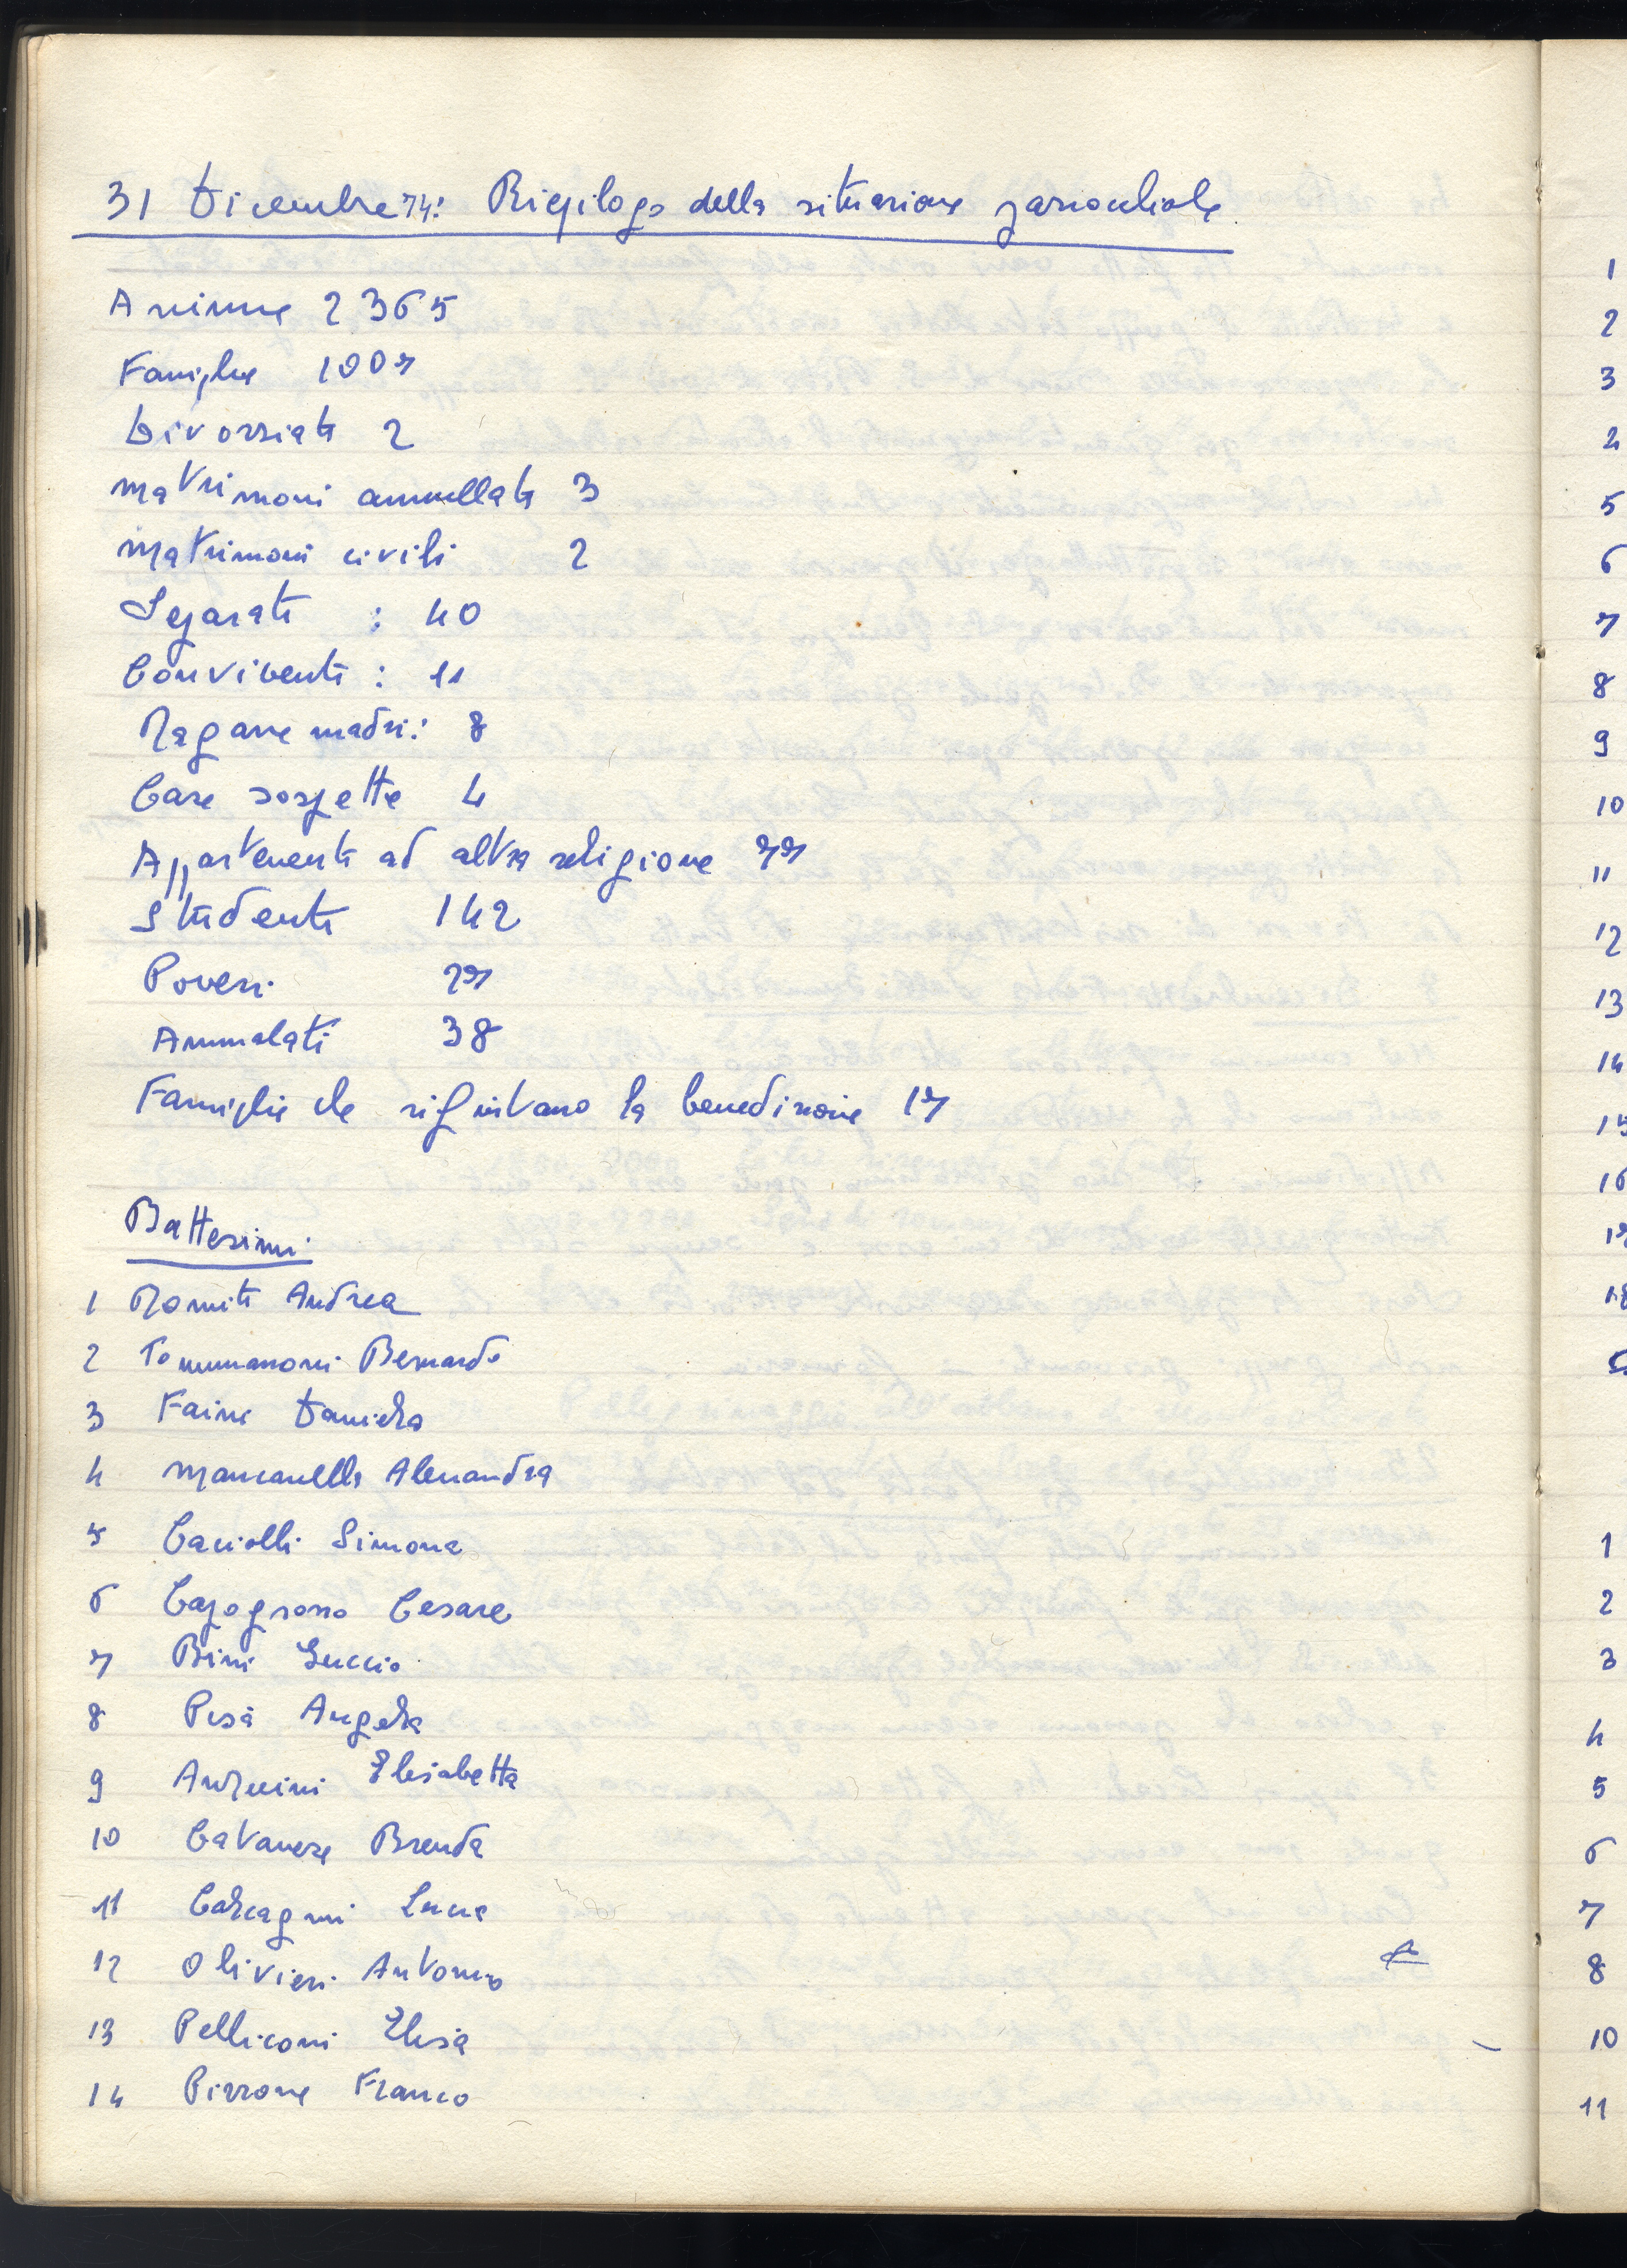 31 Dicembre 74: Riepilogo della situazione parrocchiale
Anime 2365
Famiglie 1007
Divorziati 2
Matrimoni annullati 3
Matrimoni civili 2
Separati : 40
Conviventi : 11
Ragazze madri: 8
Case sospette 4
Appartenenti ad altra religione 77
Studenti 142
Poveri 27
Ammalati 38
Famiglie che rifiutano la benedizione 17
Battesimi
1 Romiti Andrea
2 Tommasoni Bernardo
3 Faini Daniela
4 Mancanella Alessandra
5 Caciolli Simona
6 Capogrosso Cesare
7 Bini Luccio
8 Pisà Angela
9 Anzuini Elisabetta
10 Catanese Brenda
11 Calcagni Luca
12 Olivieri Antonio
13 Pelliconi Elisa
14 Pizzone Franco
1
2
3
4
5
6
7
8
9
10
11
12
13
14
15
16
17
18
1
2
3
4
5
6
7
8
10
11